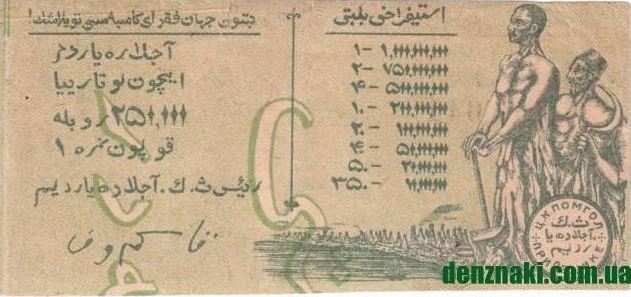 بتون جهان فقرای كاسبه سی توپلاشك!
آجلاره یاردم
ایچون لوتاریا
۲۵۰,۰۰۰ روبله
قوپون نمره ۱
رئیس ث.ك. آجلاره یاردیم
بلیتی
۱- ۱,۰۰۰,۰۰۰,۰۰۰
۲- ۷۵۰,۰۰۰,۰۰۰
۴- ۵۰۰,۰۰۰,۰۰۰
۱۰- ۲۰۰,۰۰۰,۰۰۰
۲۰- ۱۰۰,۰۰۰,۰۰۰
۴۰- ۵۰,۰۰۰,۰۰۰
۵۰- ۲۰,۰۰۰,۰۰۰
۳۵۰- ۱۰,۰۰۰,۰۰۰
Ц.К ПОМГОЛ
ПРИ
ث.ك
آجلاره یا
ردیم
denznaki.com.ua